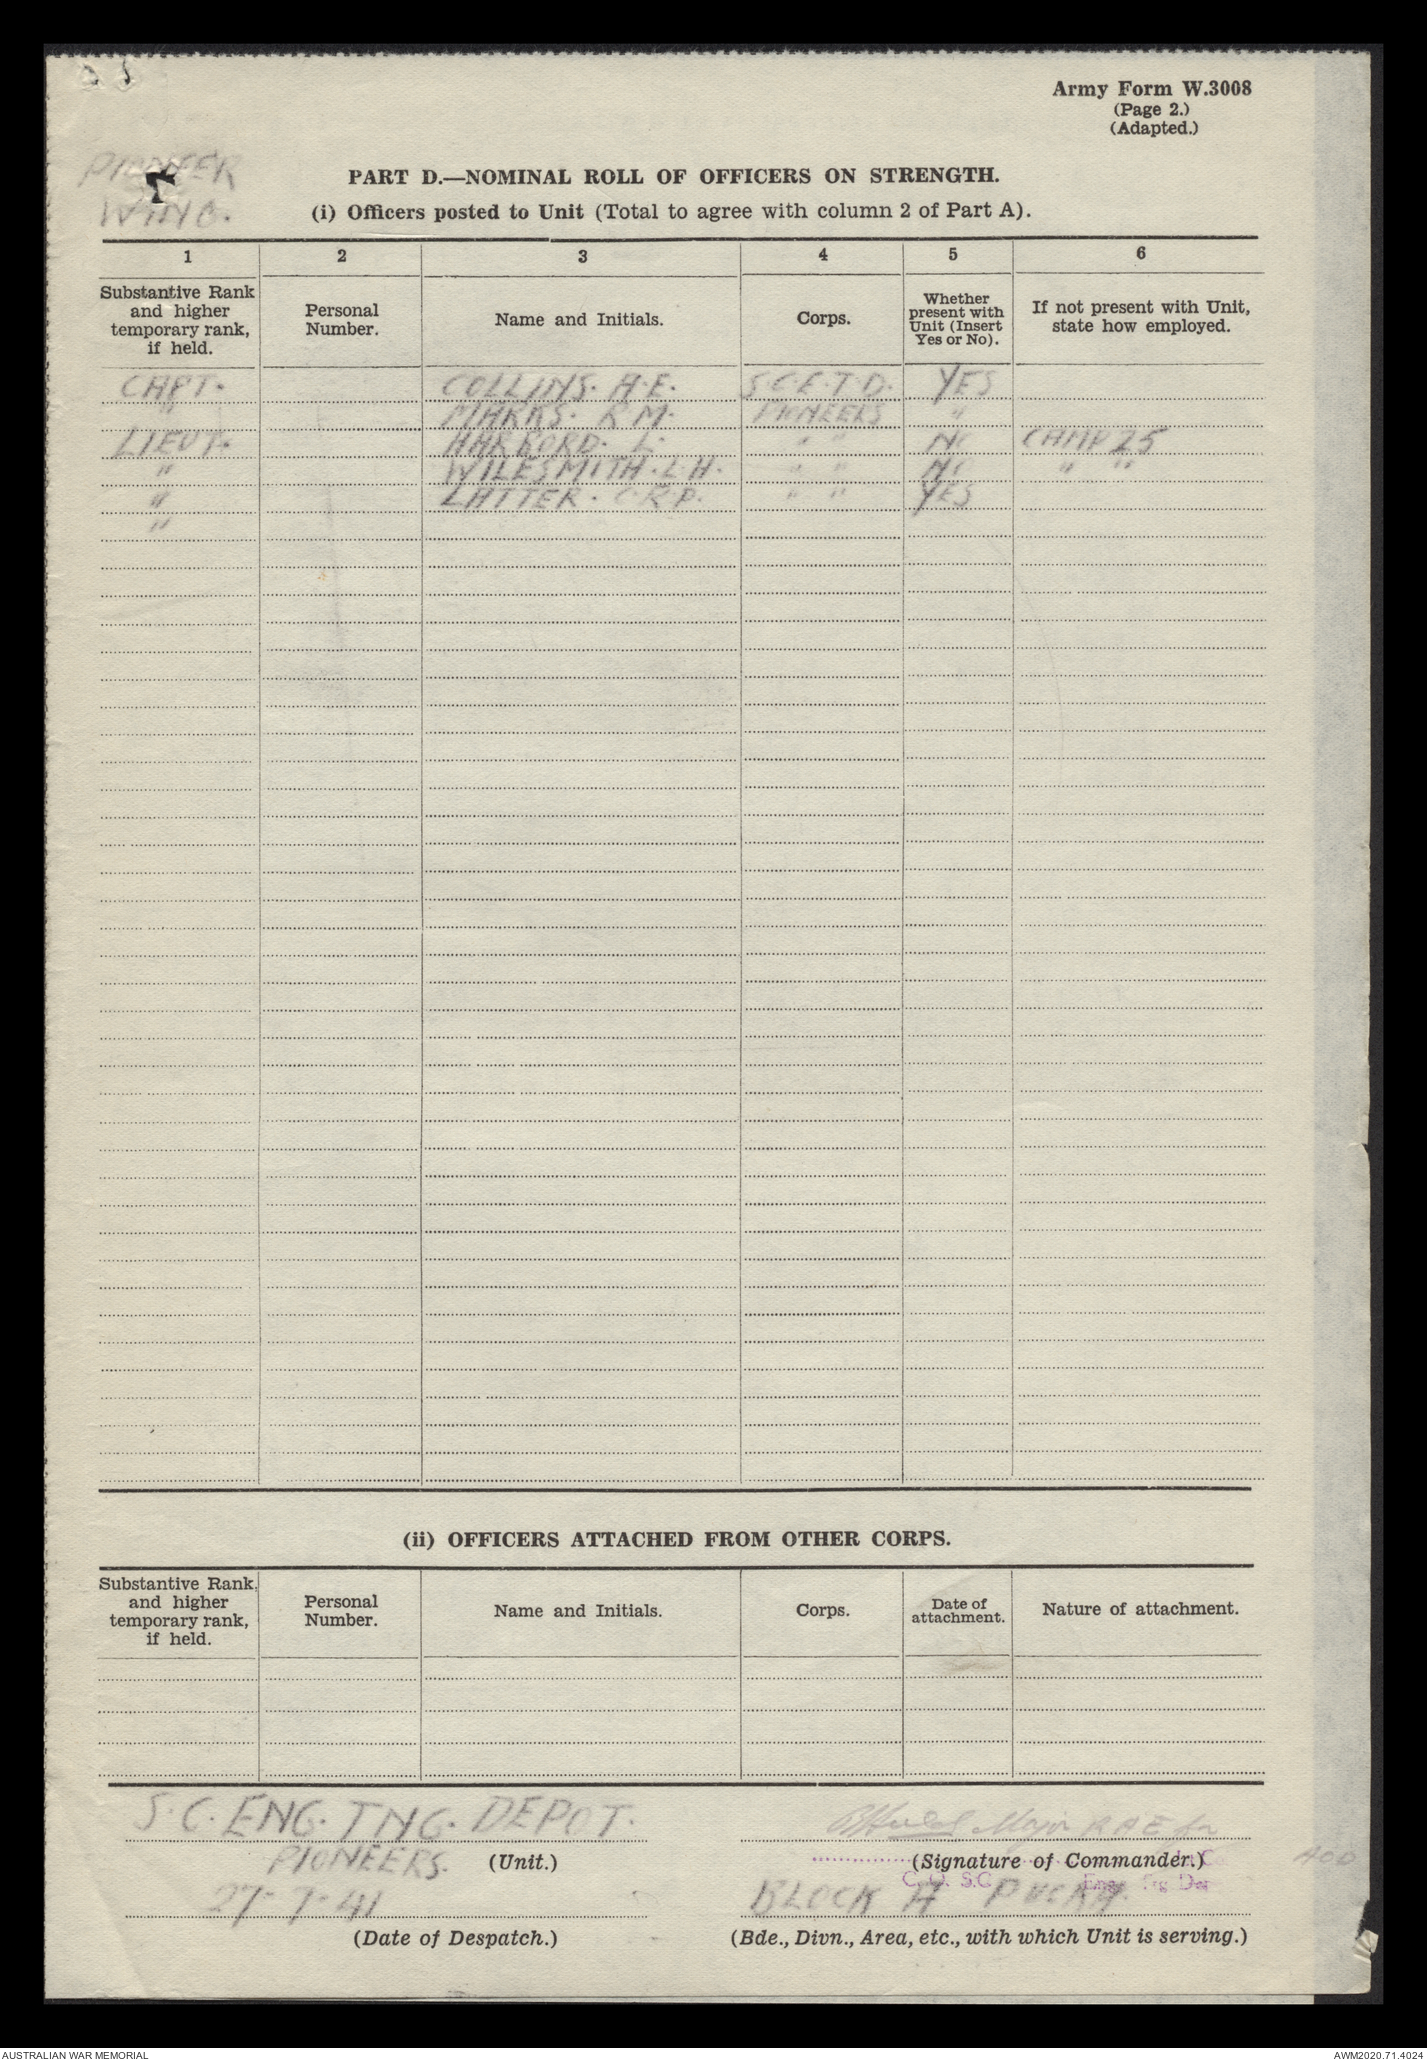 Army Form W.3008
(Page 2.)
(Adapted.)
PIONEER
WING.
PART D.—NOMINAL ROLL OF OFFICERS ON STRENGTH.
(i) Officers posted to Unit (Total to agree with column 2 of Part A).
1 2 3 4 5 6
Substantive Rank and higher temporary rank, if held. Personal Number. Name and Initials. Corps. Whether present with Unit (Insert Yes or No). If not present with Unit, state how employed.
CAPT. COLLINS. A.E. S.C.E.T.D. YES
" MARKS. R M. PIONEERS "
LIEUT. HARBORD. L. " " NO CAMP 25
" WILESMITH. L.H. " " NO " "
" LATTER. C.R.P. " " YES
"
(ii) OFFICERS ATTACHED FROM OTHER CORPS.
Substantive Rank, and higher temporary rank, if held. Personal Number. Name and Initials. Corps. Date of attachment. Nature of attachment.
S.C. ENG. TNG. DEPOT. Major R A E for
PIONEERS. (Unit.) (Signature of Commander.)
C.O. S.C. Eng. Trg Dep
27-7-41 BLOCK A PUCKA.
(Date of Despatch.) (Bde., Divn., Area, etc., with which Unit is serving.)
AUSTRALIAN WAR MEMORIAL AWM2020.71.4024